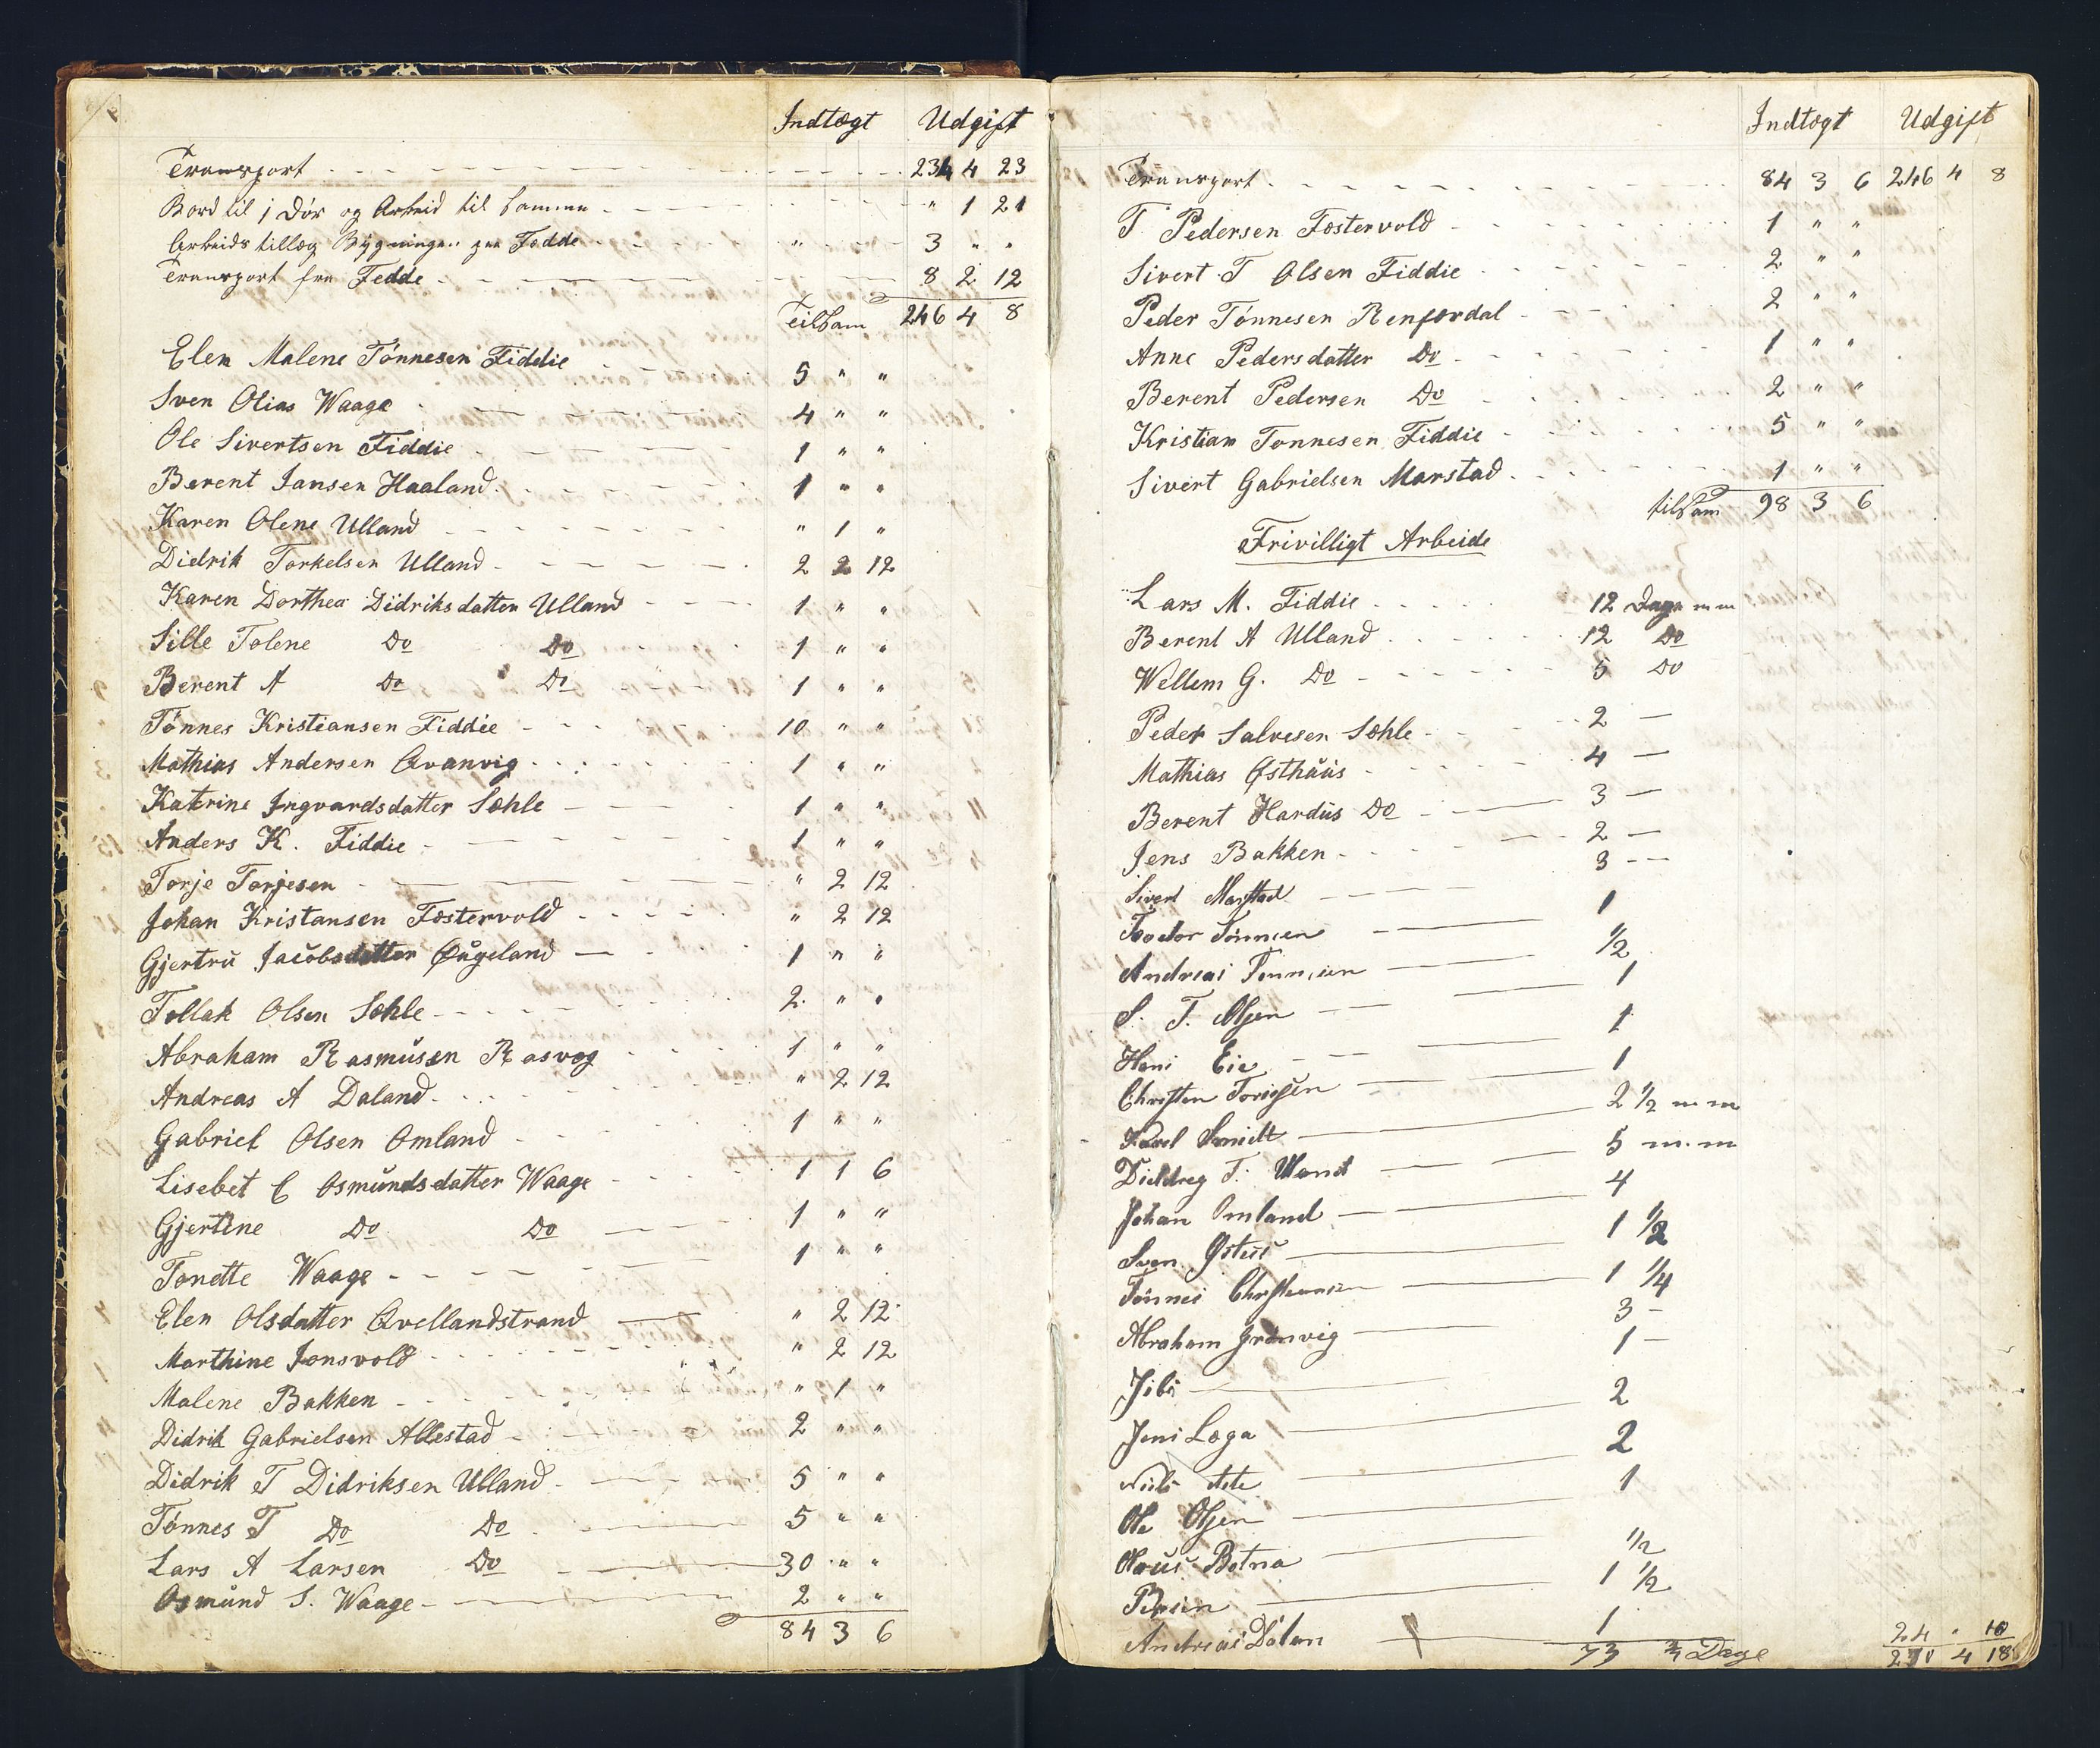 Indtægt Udgift
Transport 234 4 23
Bord til 1 Dör og Arbeid til samme " 1 21
Arbeids tillæg Bygningen paa Fedde " 3 " "
Transport fra Fedde 8 2 12
Tilsam 246 4 8
Elen Malene Tönnesen Fiddie 5 " "
Sven Olias Waage 4 " "
Ole Sivertsen Fiddie 1 " "
Berent Jansen Haaland 1 " "
Karen Olene Ulland " 1 "
Didrik Torkelsen Ulland 2 2 12
Karen Dorthea Didriksdatter Ulland 1 " "
Sille Tolene Do Do 1 " "
Berent A Do Do 1 " "
Tönnes Kristiansen Fiddie 10 " "
Mathias Andersen Qvanvig 1 " "
Katrine Ingvardsdatter Sæhle 1 " "
Anders K. Fiddie 1 " "
Torje Torjesen " 2 12
Johan Kristansen Fæstervold " 2 12
Gjertru Jacobsdatter Øygeland 1 " "
Tollak Olsen Sæhle 2 " "
Abraham Rasmusen Rasvog 1 " "
Andreas A Daland " 2 12
Gabriel Olsen Omland 1 " "
Lisebet C Osmundsdatter Waage 1 1 6
Gjertine Do Do 1 " "
Tonette Waage 1 " "
Elen Olsdatter Qvellandstrand " 2 12
Marthine Jonsvold " 2 12
Malene Bakken " 1 "
Didrik Gabrielsen Allestad 2 " "
Didrik T Didriksen Ulland 5 " "
Tönnes T Do Do 5 " "
Lars A Larsen Do 30 " "
Osmund S. Waage 2 " "
84 3 6
Indtægt Udgift
Transport 84 3 6 246 4 8
T. Pedersen Fæstervold 1 " "
Sivert T Olsen Fiddie 2 " "
Peder Tönnesen Renfordal 2 " "
Anne Pedersdatter Do 1 " "
Berent Pedersen Do 2 " "
Kristian Tonnesen Fiddie 5 " "
Sivert Gabrielsen Marstad 1 " "
tilsam 98 3 6
Frivilligt Arbeide
Lars M. Fiddie 12 Dage m m
Berent A Ulland 12 Do
Wellem G. Do 5 Do
Peder Salvesen Sæhle 2 —
Mathias Østhuus 4 —
Berent Hardus Do 3 —
Jens Bakken 2 —
Sivert Marstad 3 —
Teodor Tönnesen 1
Andreas Tönnesen 1/2
S. T. Olsen 1
Hans Eie 1
Christen Torissen 1
Karl Smidt 2 1/2 m m
Diddreg T. Uland 5 m. m
Johan Omland 4
Sven Østus 1 1/2
Tönnes Christiansen 1 1/4
Abraham Grönvig 3 —
1 —
Jens Loga 2
Niels 2
Ole Olsen 1
Olaus Botna 1/2
1 1/2
Andreas Dalan 1
73 3/4 Dage
24 . 10
270 4 18